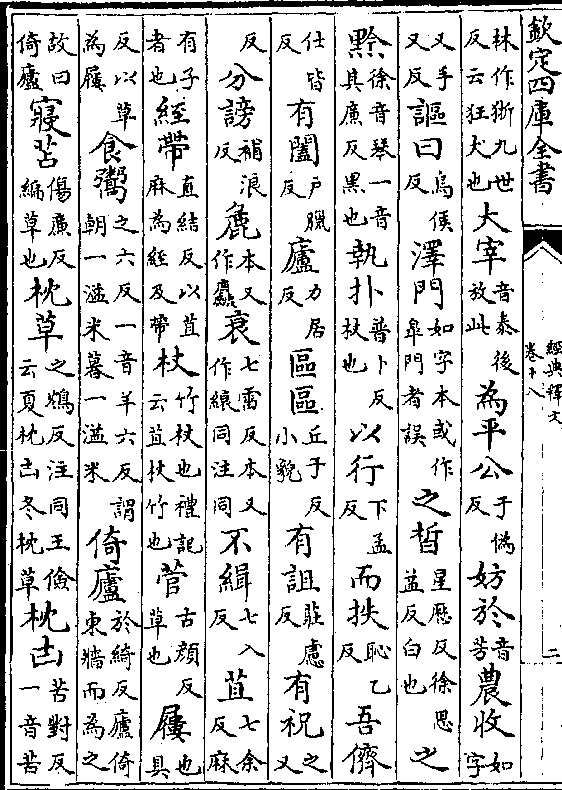 欽定四庫全書
經典釋文
卷十八
二
林作狾九世反云狂犬也大宰音泰後放此為平公于偽反妨於音芳農收如字
又手又反謳曰烏侯反澤門如字本或作皐門者誤之晳星歷反徐思益反白也之
黔徐音琴一音其廉反黑也執扑普卜反杖也以行下孟反而抶恥乙反吾儕
仕皆反有闔戶臘反廬力居反區區丘于反小貌有詛莊慮反有祝之又
反分謗補浪反麁本又作麤衰七雷反本又作縗同注同不緝七入反苴七余反麻
有子者也絰帶直結反以苴麻為絰及帶杖竹杖也禮記云苴杖竹也菅古顔反草也屨九具
反以草為屨食鬻之六反一音羊六反謂朝一溢米暮一溢米倚廬於綺反廬倚東牆而為之
故曰倚廬寢苫傷廉反編草也枕草之鴆反注同王儉云夏枕凷冬枕草枕凷苦對反一音苦